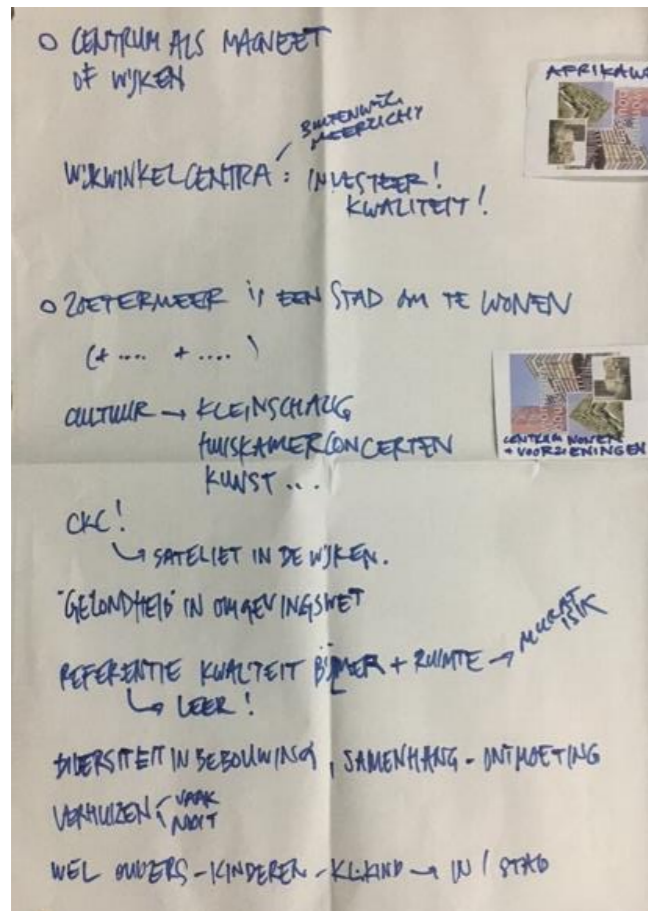 o CENTRUM ALS MAGNEET
OF WIJKEN
AFRIKAW
BUITENWEG
MEERZICHT
WIJKWINKELCENTRA : INVESTEER!
KWALITEIT!
o ZOETERMEER is EEN STAD OM TE WONEN
(+ .... + .... )
CENTRUM WONEN
+ VOORZIENINGEN
CULTUUR → KLEINSCHALIG
HUISKAMERCONCERTEN
KUNST ...
CKC!
↳ SATELIET IN DE WIJKEN.
"GEZONDHEID" IN OMGEVINGSWET
REFERENTIE KWALITEIT BIJLMER + RUIMTE → MURAT
ISIK
↳ LEER!
DIVERSITEIT IN BEBOUWING, SAMENHANG - ONTMOETING
VERHUIZEN VAAK
NOOIT
WEL OUDERS - KINDEREN - KL.KIND → IN 1 STAD